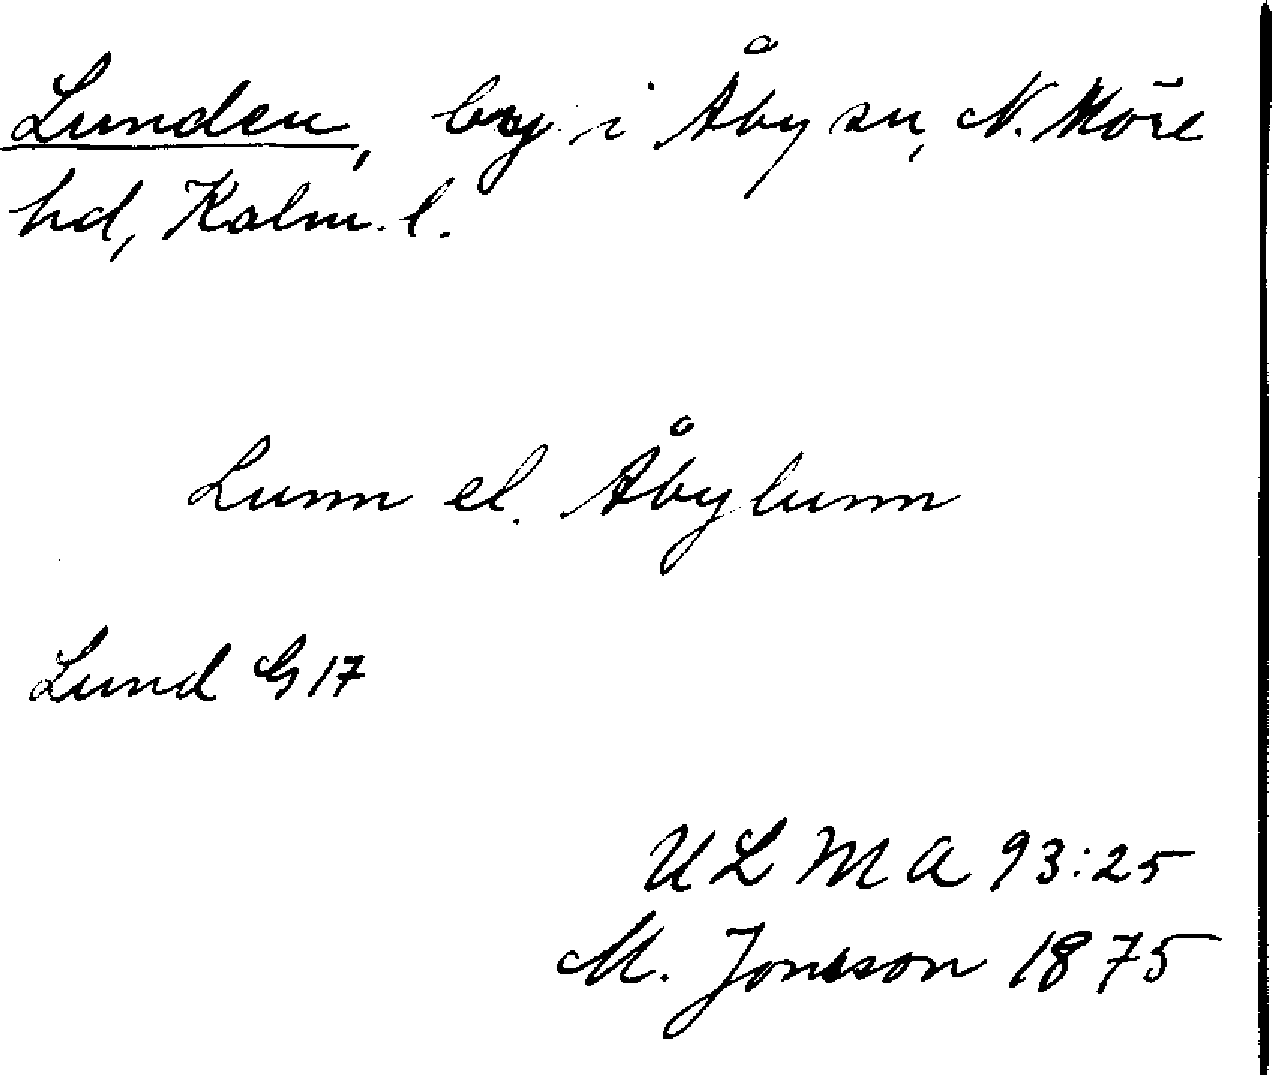 Lunden, by i Åby sn, N. Möre
hd, Kalm. l.
Lunn el. Åbylunn
Lund G 17
ULMA 93:25
M. Jonsson 1875